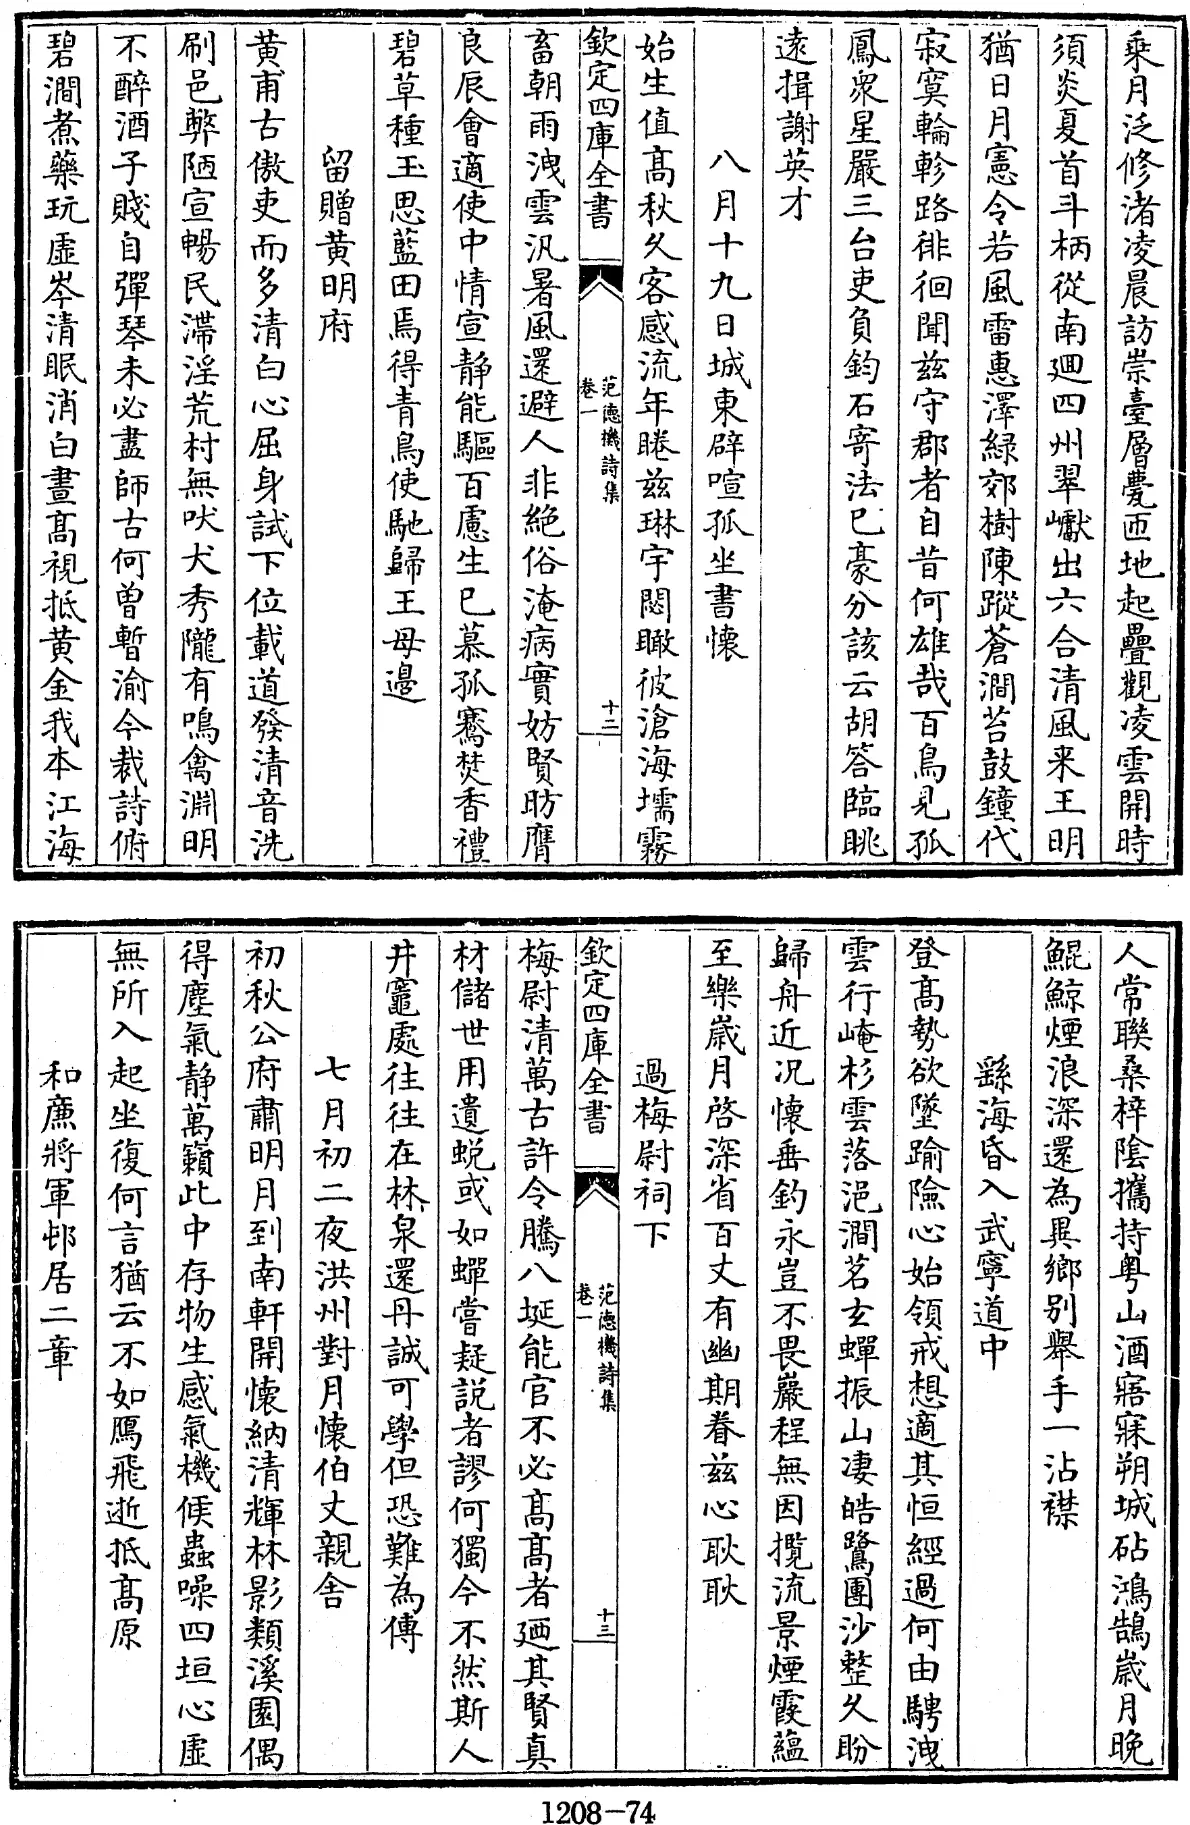 乗月泛修渚凌晨訪崇臺層甍匝地起疊觀凌雲開時
須炎夏首斗柄從南廻四州翠巘出六合清風来王明
猶日月憲令若風雷惠澤緑郊樹陳蹤蒼澗苔鼓鐘代
寂寞輪軫路徘徊聞兹守郡者自昔何雄哉百鳥見孤
鳳衆星嚴三台吏負鈞石寄法已豪分該云胡答臨眺
遠揖謝英才
八月十九日城東辟喧孤坐書懐
始生值髙秋久客感流年睠兹琳宇閟瞰彼滄海壖霧
欽定四庫全書
范德機詩集
卷一
十二
畜朝雨洩雲汎暑風還避人非絶俗淹病實妨賢昉膺
良辰會適使中情宣静能驅百慮生已慕孤騫焚香禮
碧草種玉思藍田焉得青鳥使馳歸王母邊
留贈黄明府
黄甫古傲吏而多清白心屈身試下位載道發清音洗
刷邑弊陋宣暢民滯淫荒村無吠犬秀隴有鳴禽淵明
不醉酒子賤自彈琴未必盡師古何曾暫渝今裁詩俯
碧澗煮藥玩虚岑清眠消白晝髙視抵黄金我本江海
人常聯桑梓陰攜持粤山酒寤寐朔城砧鴻鵠歲月晚
鯤鯨煙浪深還為異鄉别舉手一沾襟
繇海昏入武寧道中
登髙勢欲墜踰險心始領戒想適其恒經過何由騁洩
雲行崦杉雲落浥澗茗玄蟬振山凄皓鷺團沙整久盼
歸舟近况懐垂釣永豈不畏嚴程無因攬流景煙霞蘊
至樂歲月啓深省百丈有幽期眷兹心耿耿
過梅尉祠下
欽定四庫全書
范德機詩集
卷一
十三
梅尉清萬古許令騰八埏能官不必髙髙者廼其賢真
材儲世用遺蜕或如蟬嘗疑説者謬何獨今不然斯人
井竈處往往在林泉還丹誠可學但恐難為傳
七月初二夜洪州對月懐伯丈親舎
初秋公府肅明月到南軒開懐納清輝林影類溪園偶
得塵氣静萬籟此中存物生感氣機候蟲噪四垣心虚
無所入起坐復何言猶云不如鴈飛逝抵髙原
和廉將軍邨居二章
1208-74